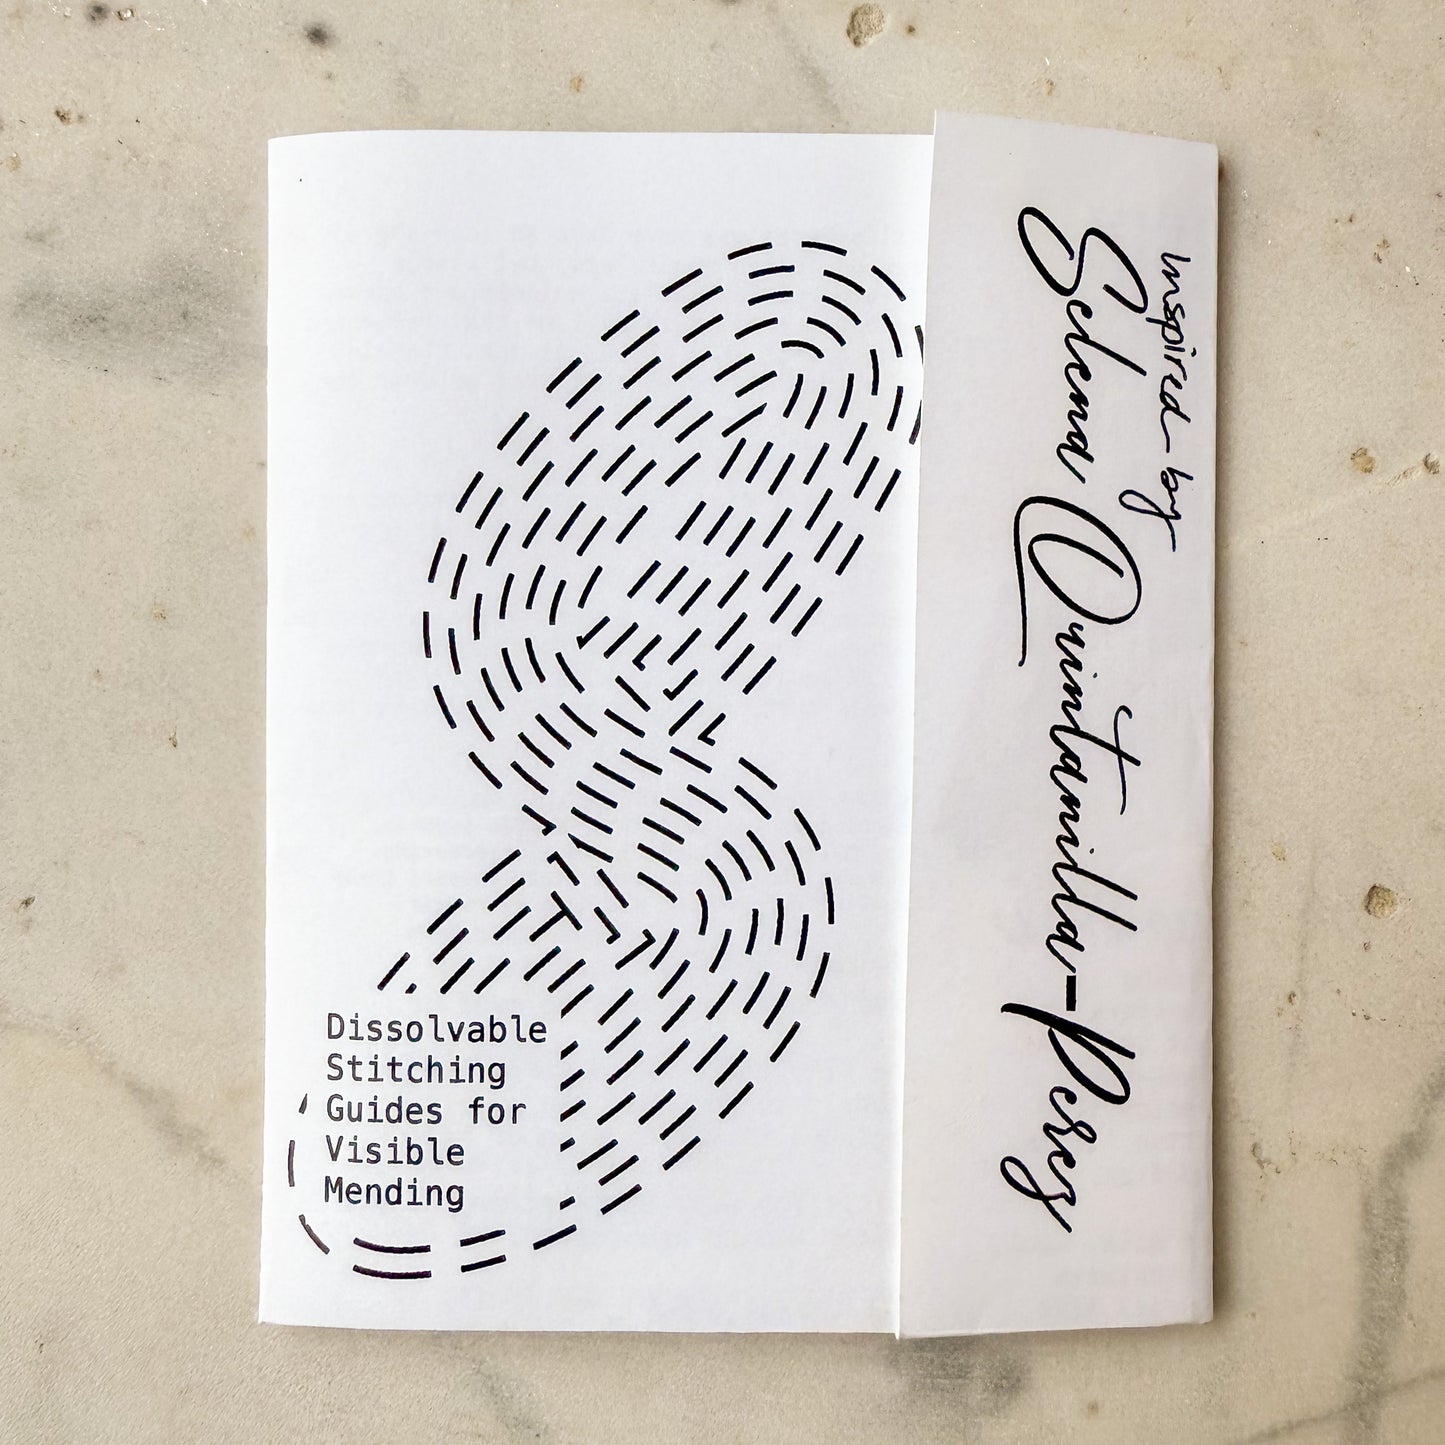 Dissolvable
Stitching
Guides for
Visible
Mending
Inspired by
Selena Quintanilla-Perez